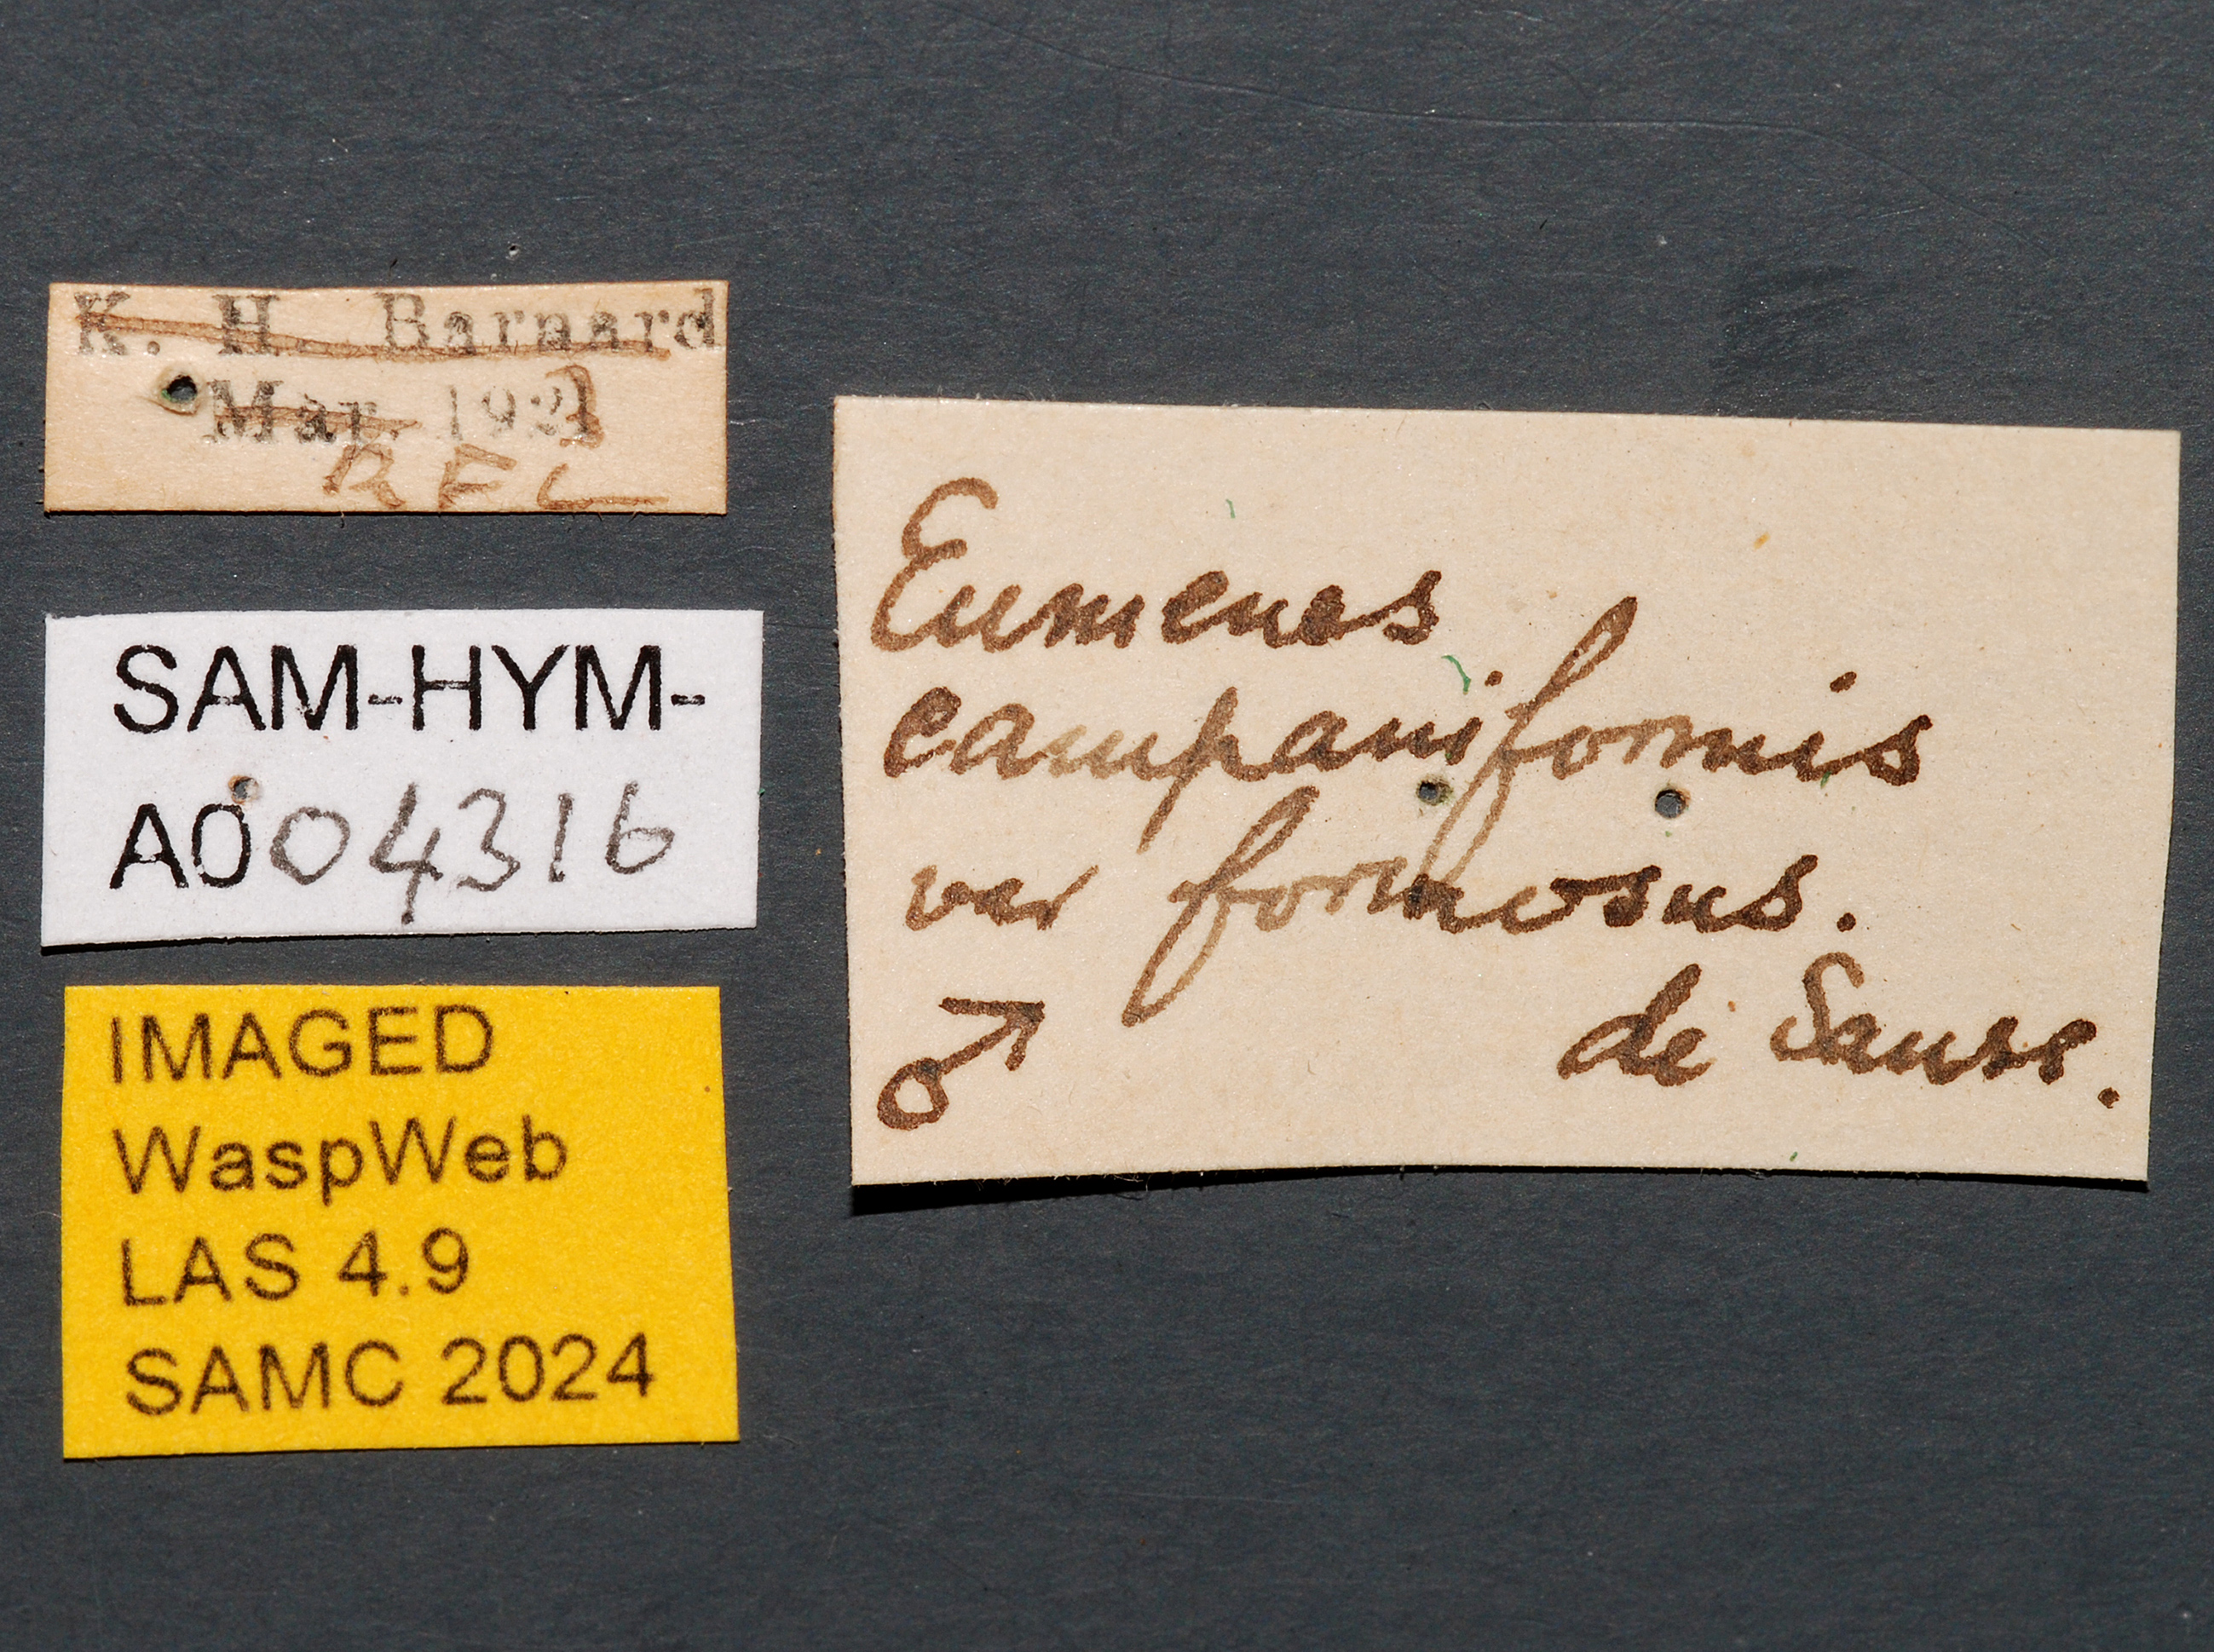 K. H. Barnard
Mar. 1923
R F L
SAM-HYM-
A004316
IMAGED
WaspWeb
LAS 4.9
SAMC 2024
Eumenes
campaniformis
var formosus.
♂ de Sauss.